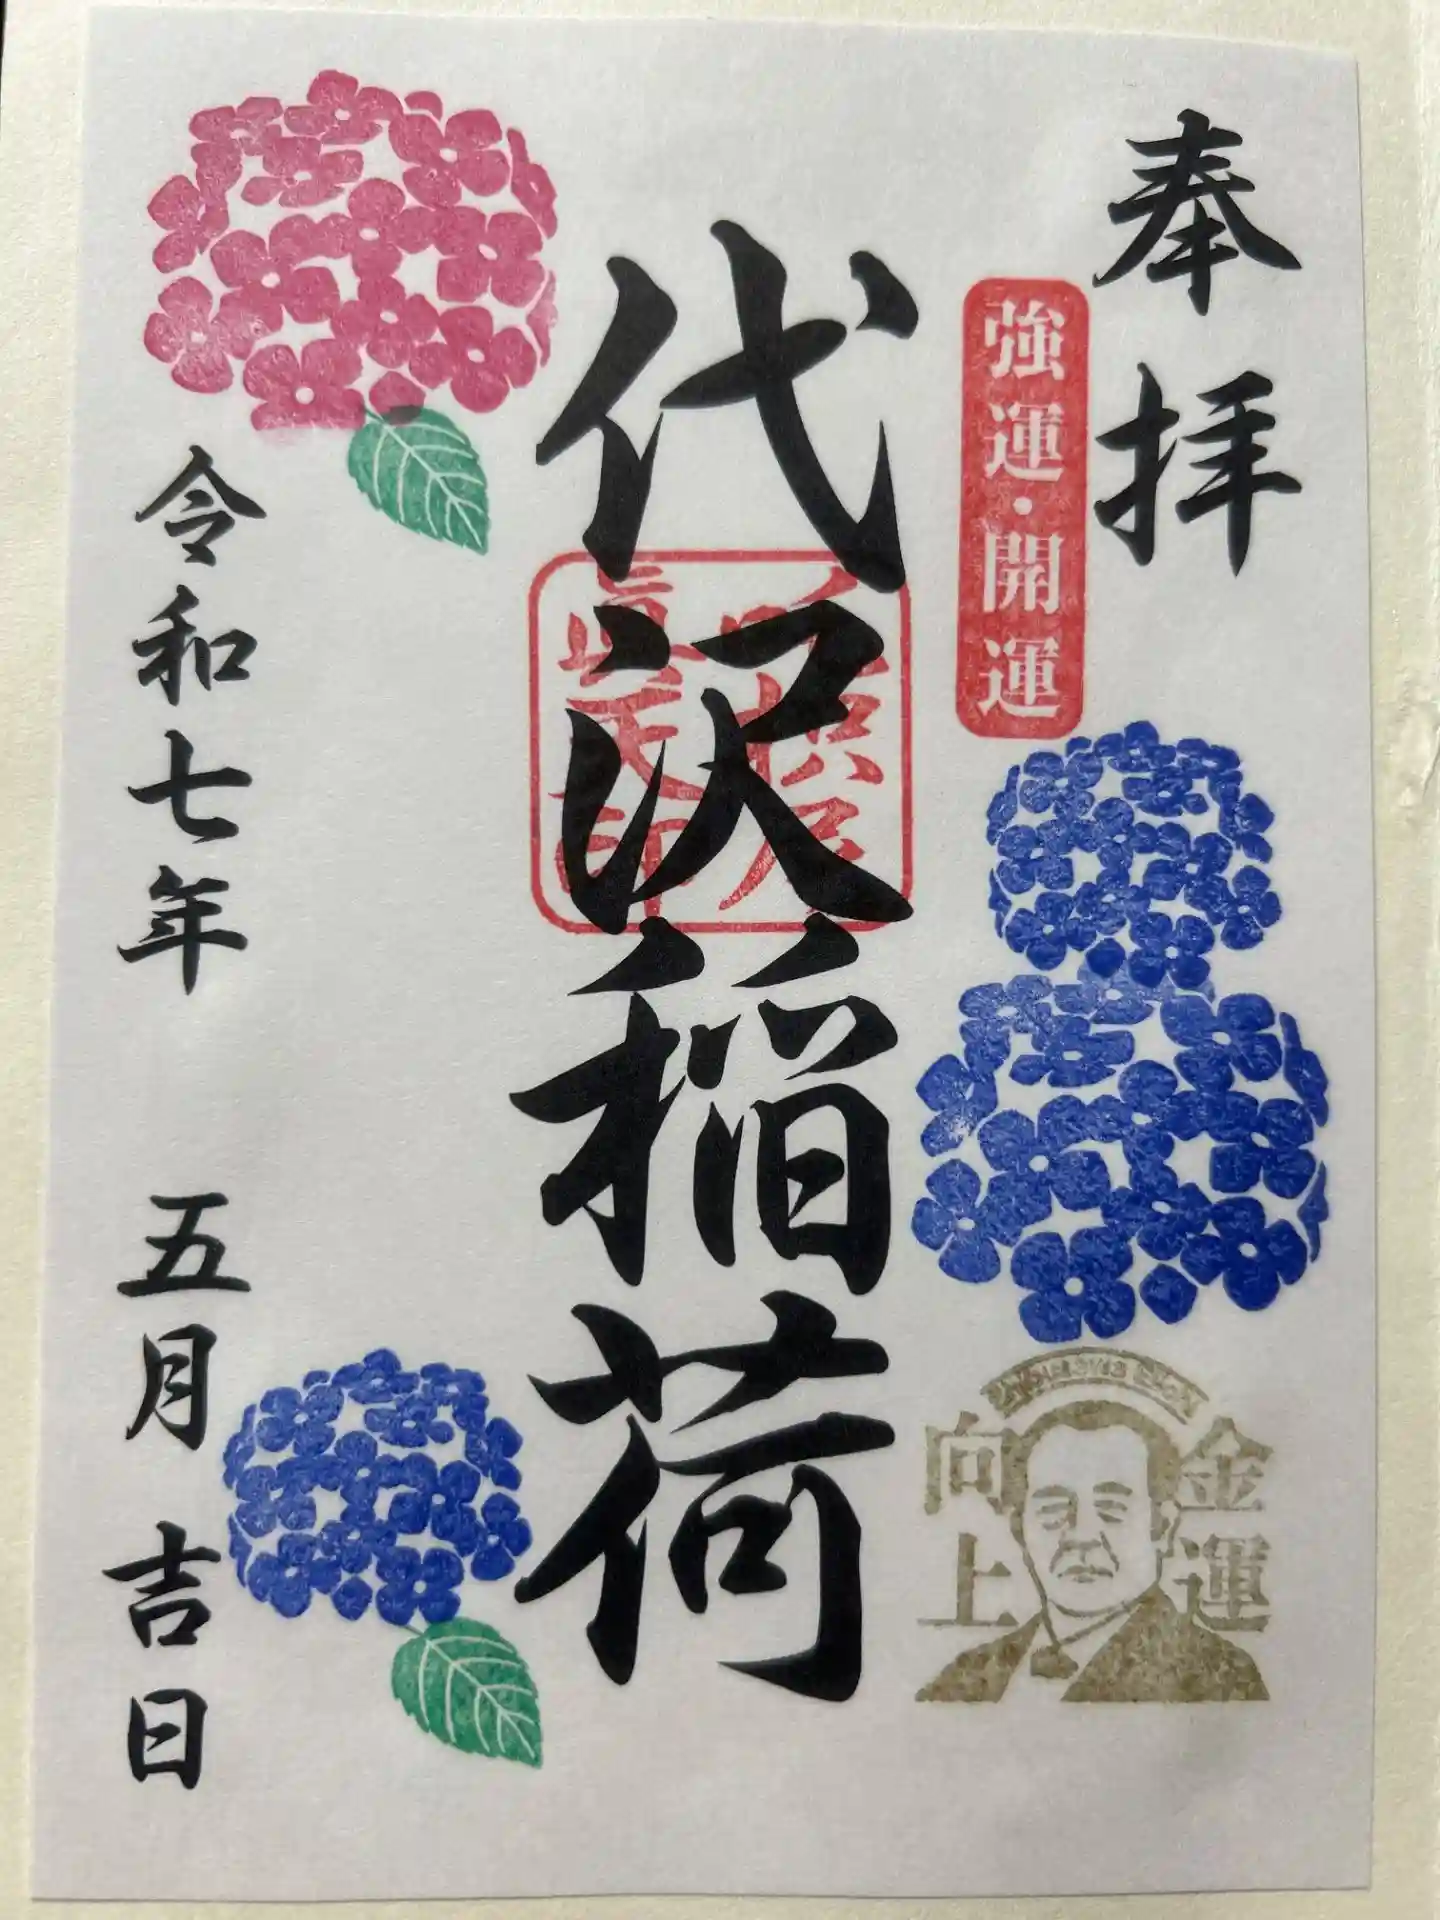 奉拝
強運・開運
金運
向上
代沢稲荷
令和七年 五月 吉日